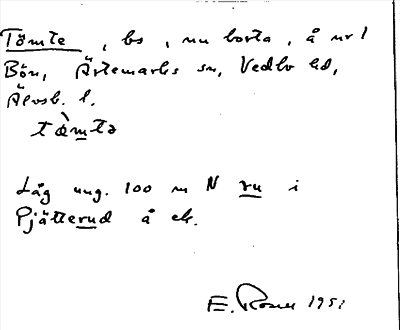 Tömte, bs, nu borta, å nr 1
Bön, Ärtemarks sn, Vedbo hd,
Älvsb. l.
tœ̀mtə
Låg ung. 100 m N ru i
Pjätterud å ek.
E. Rosell 1951